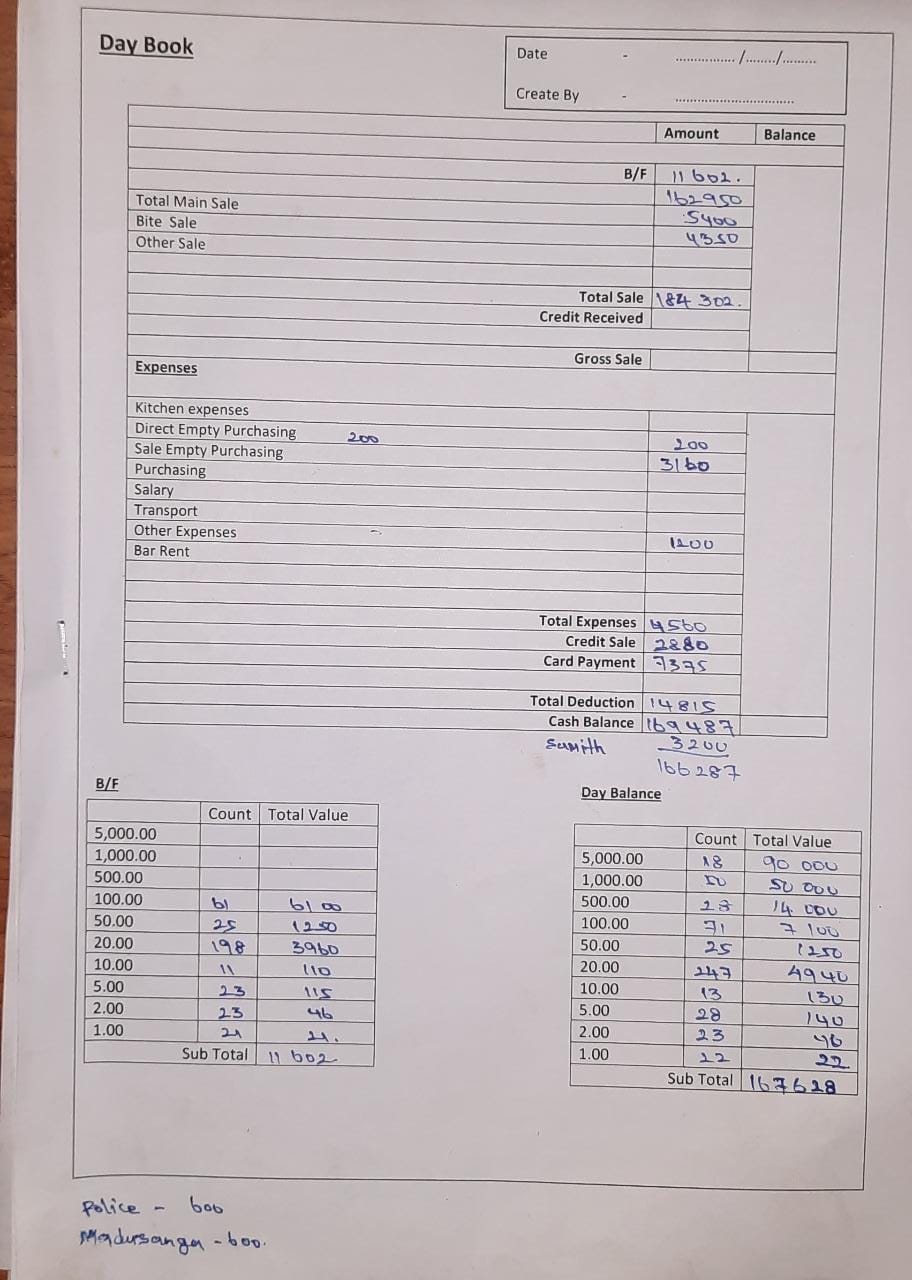 Day Book
Date - ................/......../.........
Create By - ................................
Amount Balance
B/F 11 602.
162950
Total Main Sale
Bite Sale 5400
Other Sale 4350
Total Sale 184 302.
Credit Received
Gross Sale
Expenses
Kitchen expenses
Direct Empty Purchasing 200 200
Sale Empty Purchasing 3160
Purchasing
Salary
Transport
Other Expenses - 1200
Bar Rent
Total Expenses 4560
Credit Sale 2880
Card Payment 7375
Total Deduction 14815
Cash Balance 169487
Sumith 3200
166287
B/F
Count Total Value
5,000.00
1,000.00
500.00
100.00 61 6100
50.00 25 1250
20.00 198 3960
10.00 11 110
5.00 23 115
2.00 23 46
1.00 21 21.
Sub Total 11 602
Day Balance
Count Total Value
5,000.00 18 90 000
1,000.00 50 50 000
500.00 28 14 000
100.00 71 7 100
50.00 25 1250
20.00 247 4940
10.00 13 130
5.00 28 140
2.00 23 46
1.00 22 22
Sub Total 167628
Police - 600
Madusanga - 600.